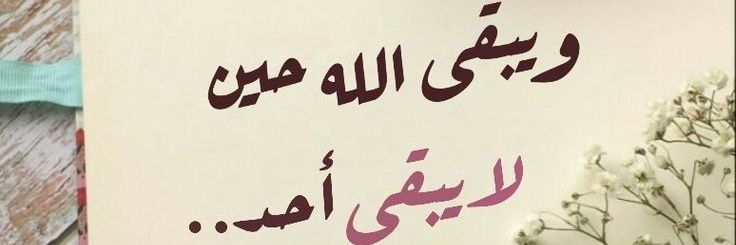 ويبقى الله حين
لا يبقى أحد..